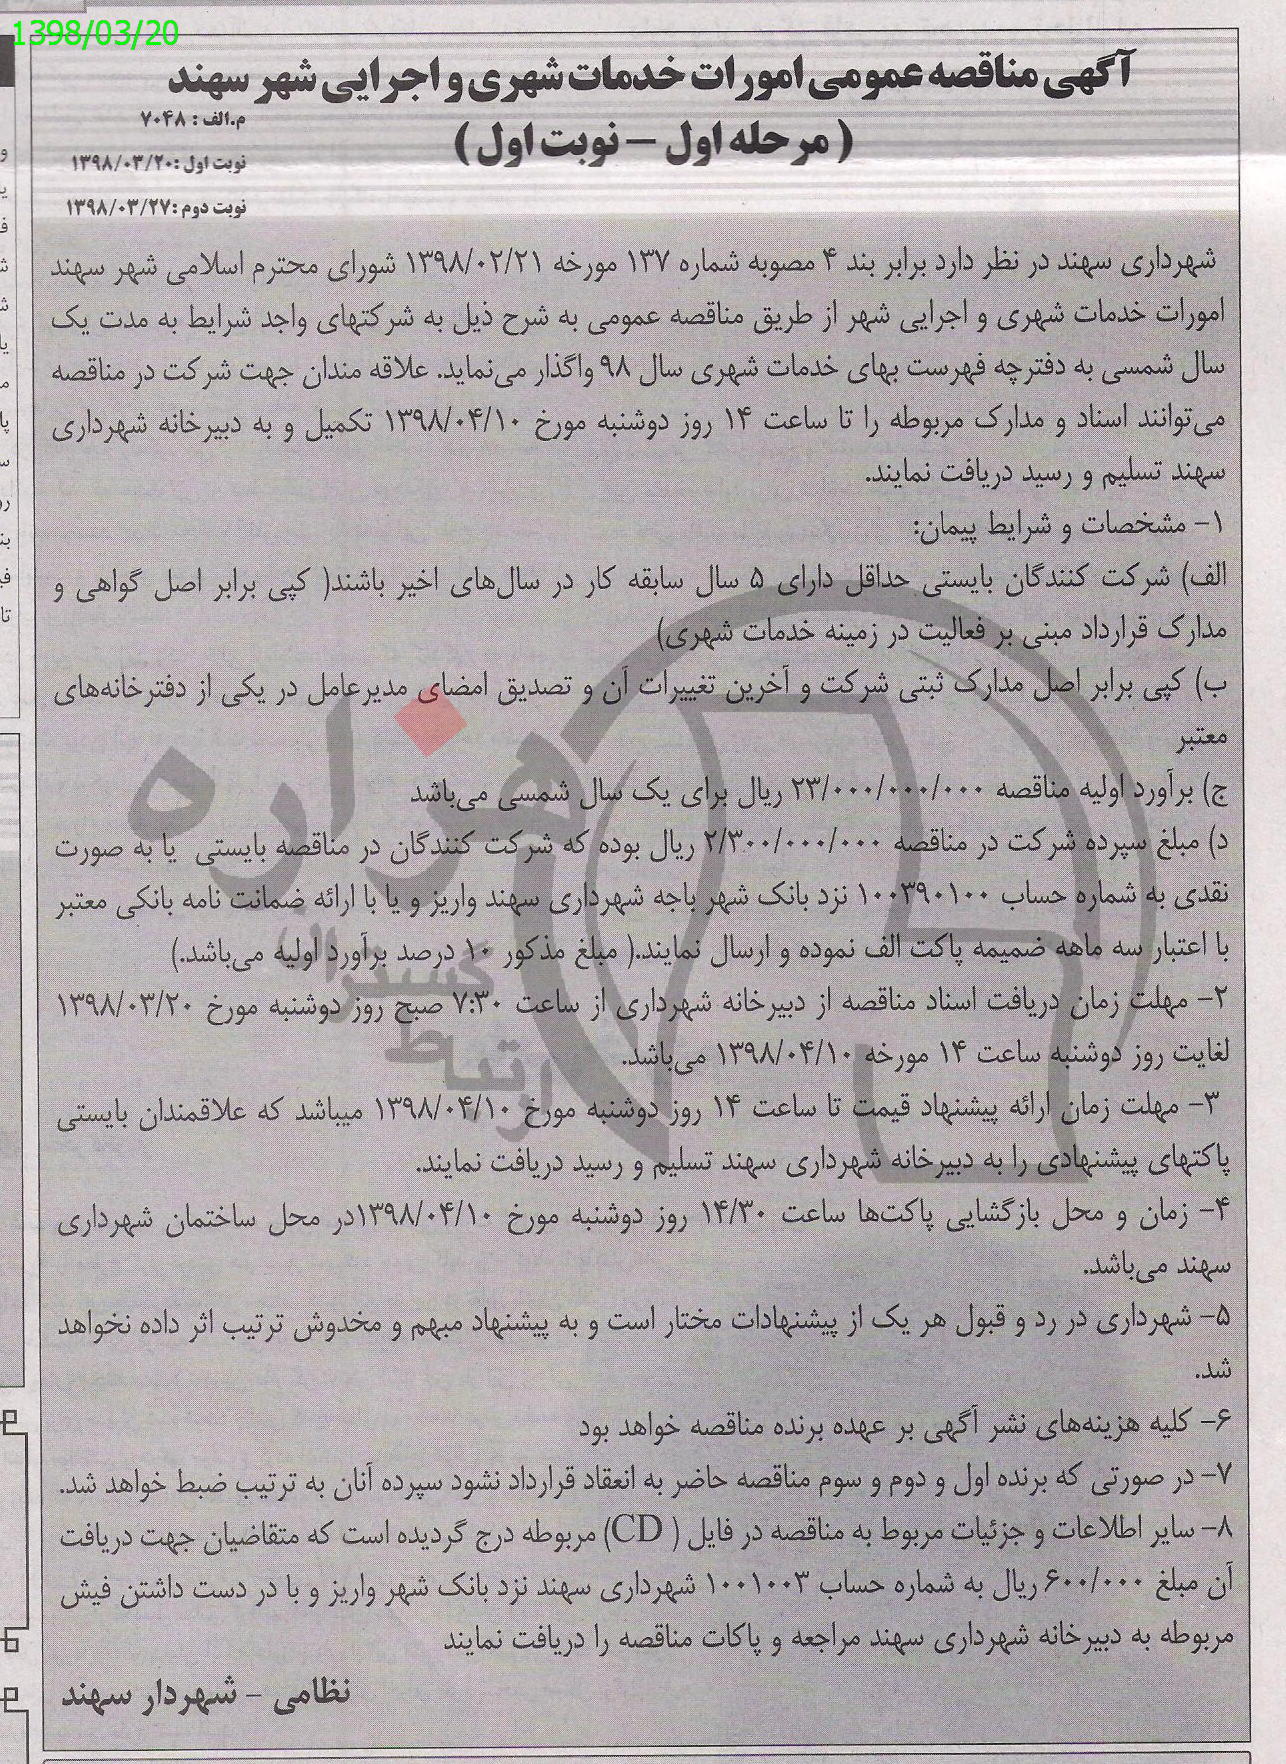 1398/03/20
آگهی مناقصه عمومی امورات خدمات شهری و اجرایی شهر سهند
( مرحله اول – نوبت اول )
م.الف : ۷۰۴۸
نوبت اول :۱۳۹۸/۰۳/۲۰
نوبت دوم :۱۳۹۸/۰۳/۲۷
شهرداری سهند در نظر دارد برابر بند ۴ مصوبه شماره ۱۳۷ مورخه ۱۳۹۸/۰۲/۲۱ شورای محترم اسلامی شهر سهند
امورات خدمات شهری و اجرایی شهر از طریق مناقصه عمومی به شرح ذیل به شرکتهای واجد شرایط به مدت یک
سال شمسی به دفترچه فهرست بهای خدمات شهری سال ۹۸ واگذار می‌نماید. علاقه مندان جهت شرکت در مناقصه
می‌توانند اسناد و مدارک مربوطه را تا ساعت ۱۴ روز دوشنبه مورخ ۱۳۹۸/۰۴/۱۰ تکمیل و به دبیرخانه شهرداری
سهند تسلیم و رسید دریافت نمایند.
۱- مشخصات و شرایط پیمان:
الف) شرکت کنندگان بایستی حداقل دارای ۵ سال سابقه کار در سال‌های اخیر باشند( کپی برابر اصل گواهی و
مدارک قرارداد مبنی بر فعالیت در زمینه خدمات شهری)
ب) کپی برابر اصل مدارک ثبتی شرکت و آخرین تغییرات آن و تصدیق امضای مدیرعامل در یکی از دفترخانه‌های
معتبر
ج) برآورد اولیه مناقصه ۲۳/۰۰۰/۰۰۰/۰۰۰ ریال برای یک سال شمسی می‌باشد
د) مبلغ سپرده شرکت در مناقصه ۲/۳۰۰/۰۰۰/۰۰۰ ریال بوده که شرکت کنندگان در مناقصه بایستی یا به صورت
نقدی به شماره حساب ۱۰۰۳۹۰۱۰۰ نزد بانک شهر باجه شهرداری سهند واریز و یا با ارائه ضمانت نامه بانکی معتبر
با اعتبار سه ماهه ضمیمه پاکت الف نموده و ارسال نمایند.( مبلغ مذکور ۱۰ درصد برآورد اولیه می‌باشد.)
۲- مهلت زمان دریافت اسناد مناقصه از دبیرخانه شهرداری از ساعت ۷:۳۰ صبح روز دوشنبه مورخ ۱۳۹۸/۰۳/۲۰
لغایت روز دوشنبه ساعت ۱۴ مورخه ۱۳۹۸/۰۴/۱۰ می‌باشد.
۳- مهلت زمان ارائه پیشنهاد قیمت تا ساعت ۱۴ روز دوشنبه مورخ ۱۳۹۸/۰۴/۱۰ میباشد که علاقمندان بایستی
پاکتهای پیشنهادی را به دبیرخانه شهرداری سهند تسلیم و رسید دریافت نمایند.
۴- زمان و محل بازگشایی پاکت‌ها ساعت ۱۴/۳۰ روز دوشنبه مورخ ۱۳۹۸/۰۴/۱۰در محل ساختمان شهرداری
سهند می‌باشد.
۵- شهرداری در رد و قبول هر یک از پیشنهادات مختار است و به پیشنهاد مبهم و مخدوش ترتیب اثر داده نخواهد
شد.
۶- کلیه هزینه‌های نشر آگهی بر عهده برنده مناقصه خواهد بود
۷- در صورتی که برنده اول و دوم و سوم مناقصه حاضر به انعقاد قرارداد نشود سپرده آنان به ترتیب ضبط خواهد شد.
۸- سایر اطلاعات و جزئیات مربوط به مناقصه در فایل ( CD) مربوطه درج گردیده است که متقاضیان جهت دریافت
آن مبلغ ۶۰۰/۰۰۰ ریال به شماره حساب ۱۰۰۱۰۰۳ شهرداری سهند نزد بانک شهر واریز و با در دست داشتن فیش
مربوطه به دبیرخانه شهرداری سهند مراجعه و پاکات مناقصه را دریافت نمایند
نظامی - شهردار سهند
هزاره